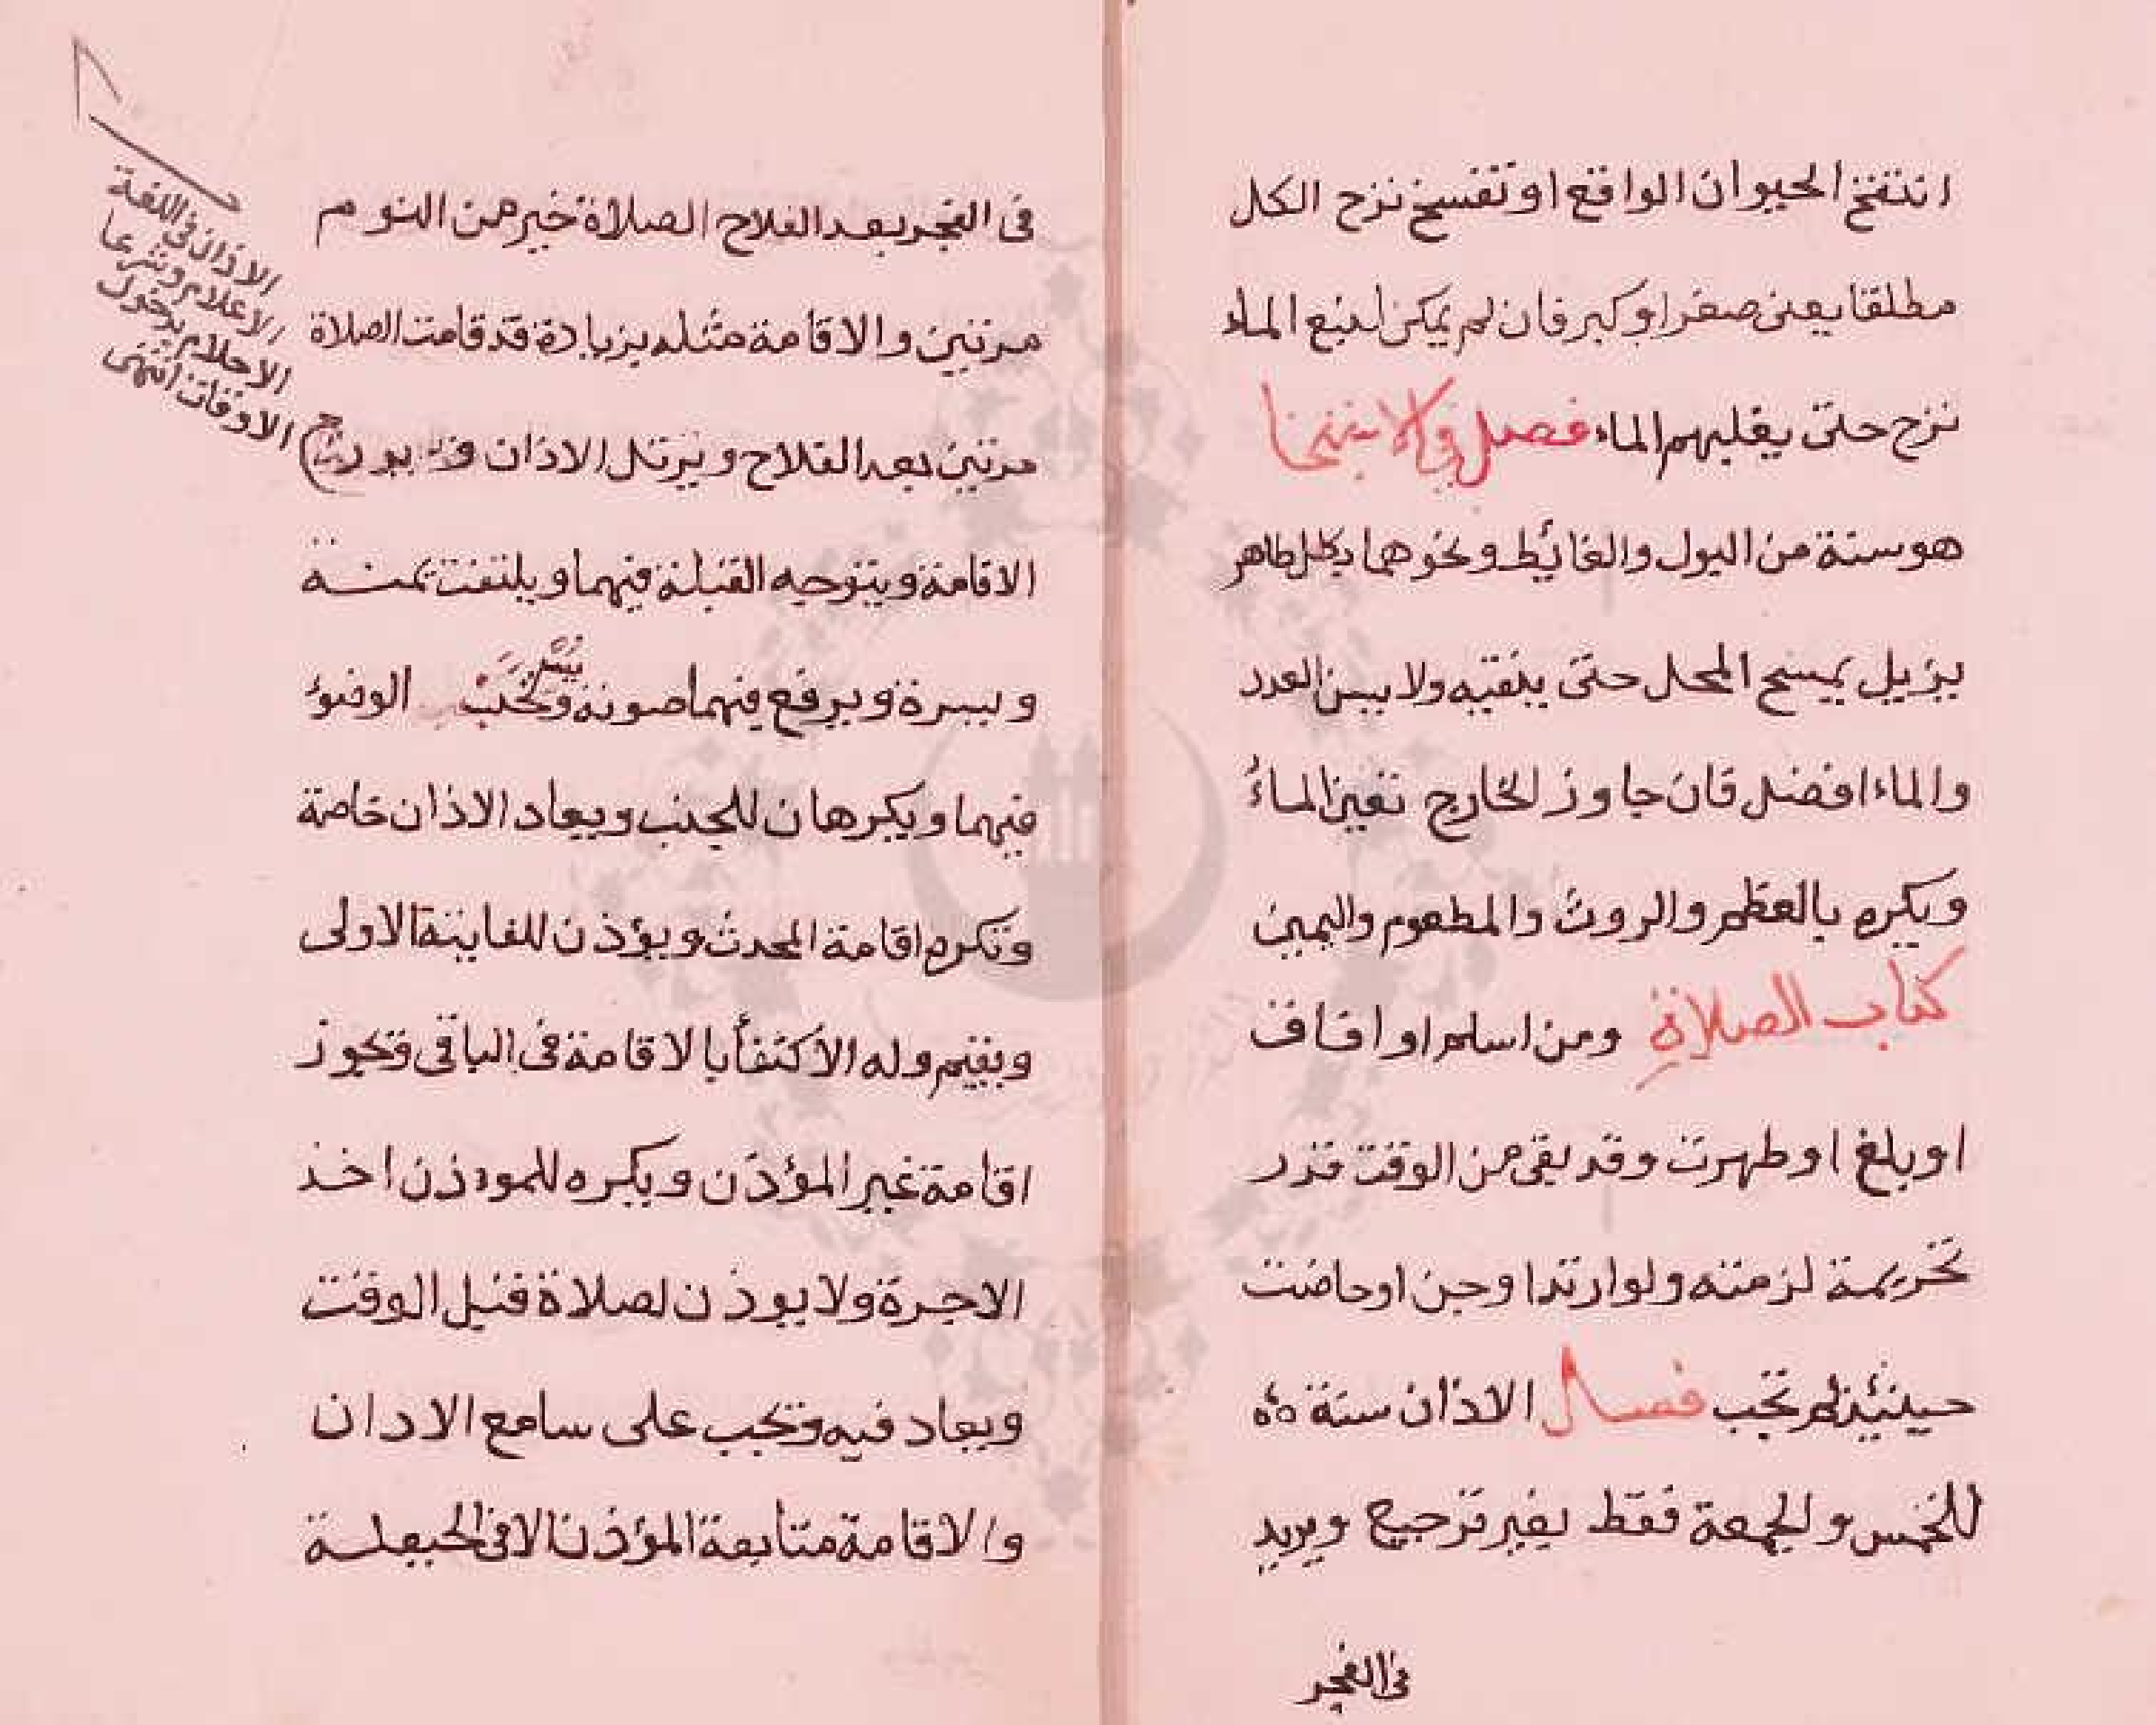 انتفخ الحيوان الواقع او تفسخ نزح الكل
مطلقا يعنى صغر او كبر فان لم يمكن لنبع الماء
نزح حتى يغلبهم الماء فصل فى الاستنجا
هو سنة من البول والغائط ونحوهما بكل طاهر
يزيل يمسح المحل حتى ينقيه ولا يسن العدد
والماء افضل فان جاوز الخارج تعين الماء
ويكره بالعظم والروث والمطعوم واليمين
كتاب الصلاة ومن اسلم او افاق
او بلغ او طهرت وقد بقى من الوقت قدر
تحريمة لزمته ولو ارتدا وجن او حاضت
حينئذ لم تجب فصل الاذان سنة
للخمس والجمعة فقط بغير ترجيع ويزيد
فى الفجر
فى الفجر بعد الفلاح الصلاة خير من النوم
مرتين والاقامة مثله بزيادة قد قامت الصلاة
مرتين بعد الفلاح ويرتل الاذان
الاقامة ويتوجه القبلة فيهما ويلتفت يمنة
ويسرة ويرفع فيهما صوته ويستحب الوضوء
فيهما ويكرهان للجنب ويعاد الاذان خاصة
وتكره اقامة المحدث ويؤذن للفايتة الاولى
ويقيم وله الاكتفأ بالاقامة فى الباقى وتجوز
اقامة غير المؤذن ويكره للموذن اخذ
الاجرة ولا يوذن لصلاة قبل الوقت
ويعاد فيه وتجب على سامع الادان
والاقامة متابعة المؤذن الا فى الحيعلة
الاذان فى اللغة
الاعلام وشرعا
الاعلام بدخول
الاوقات انتهى